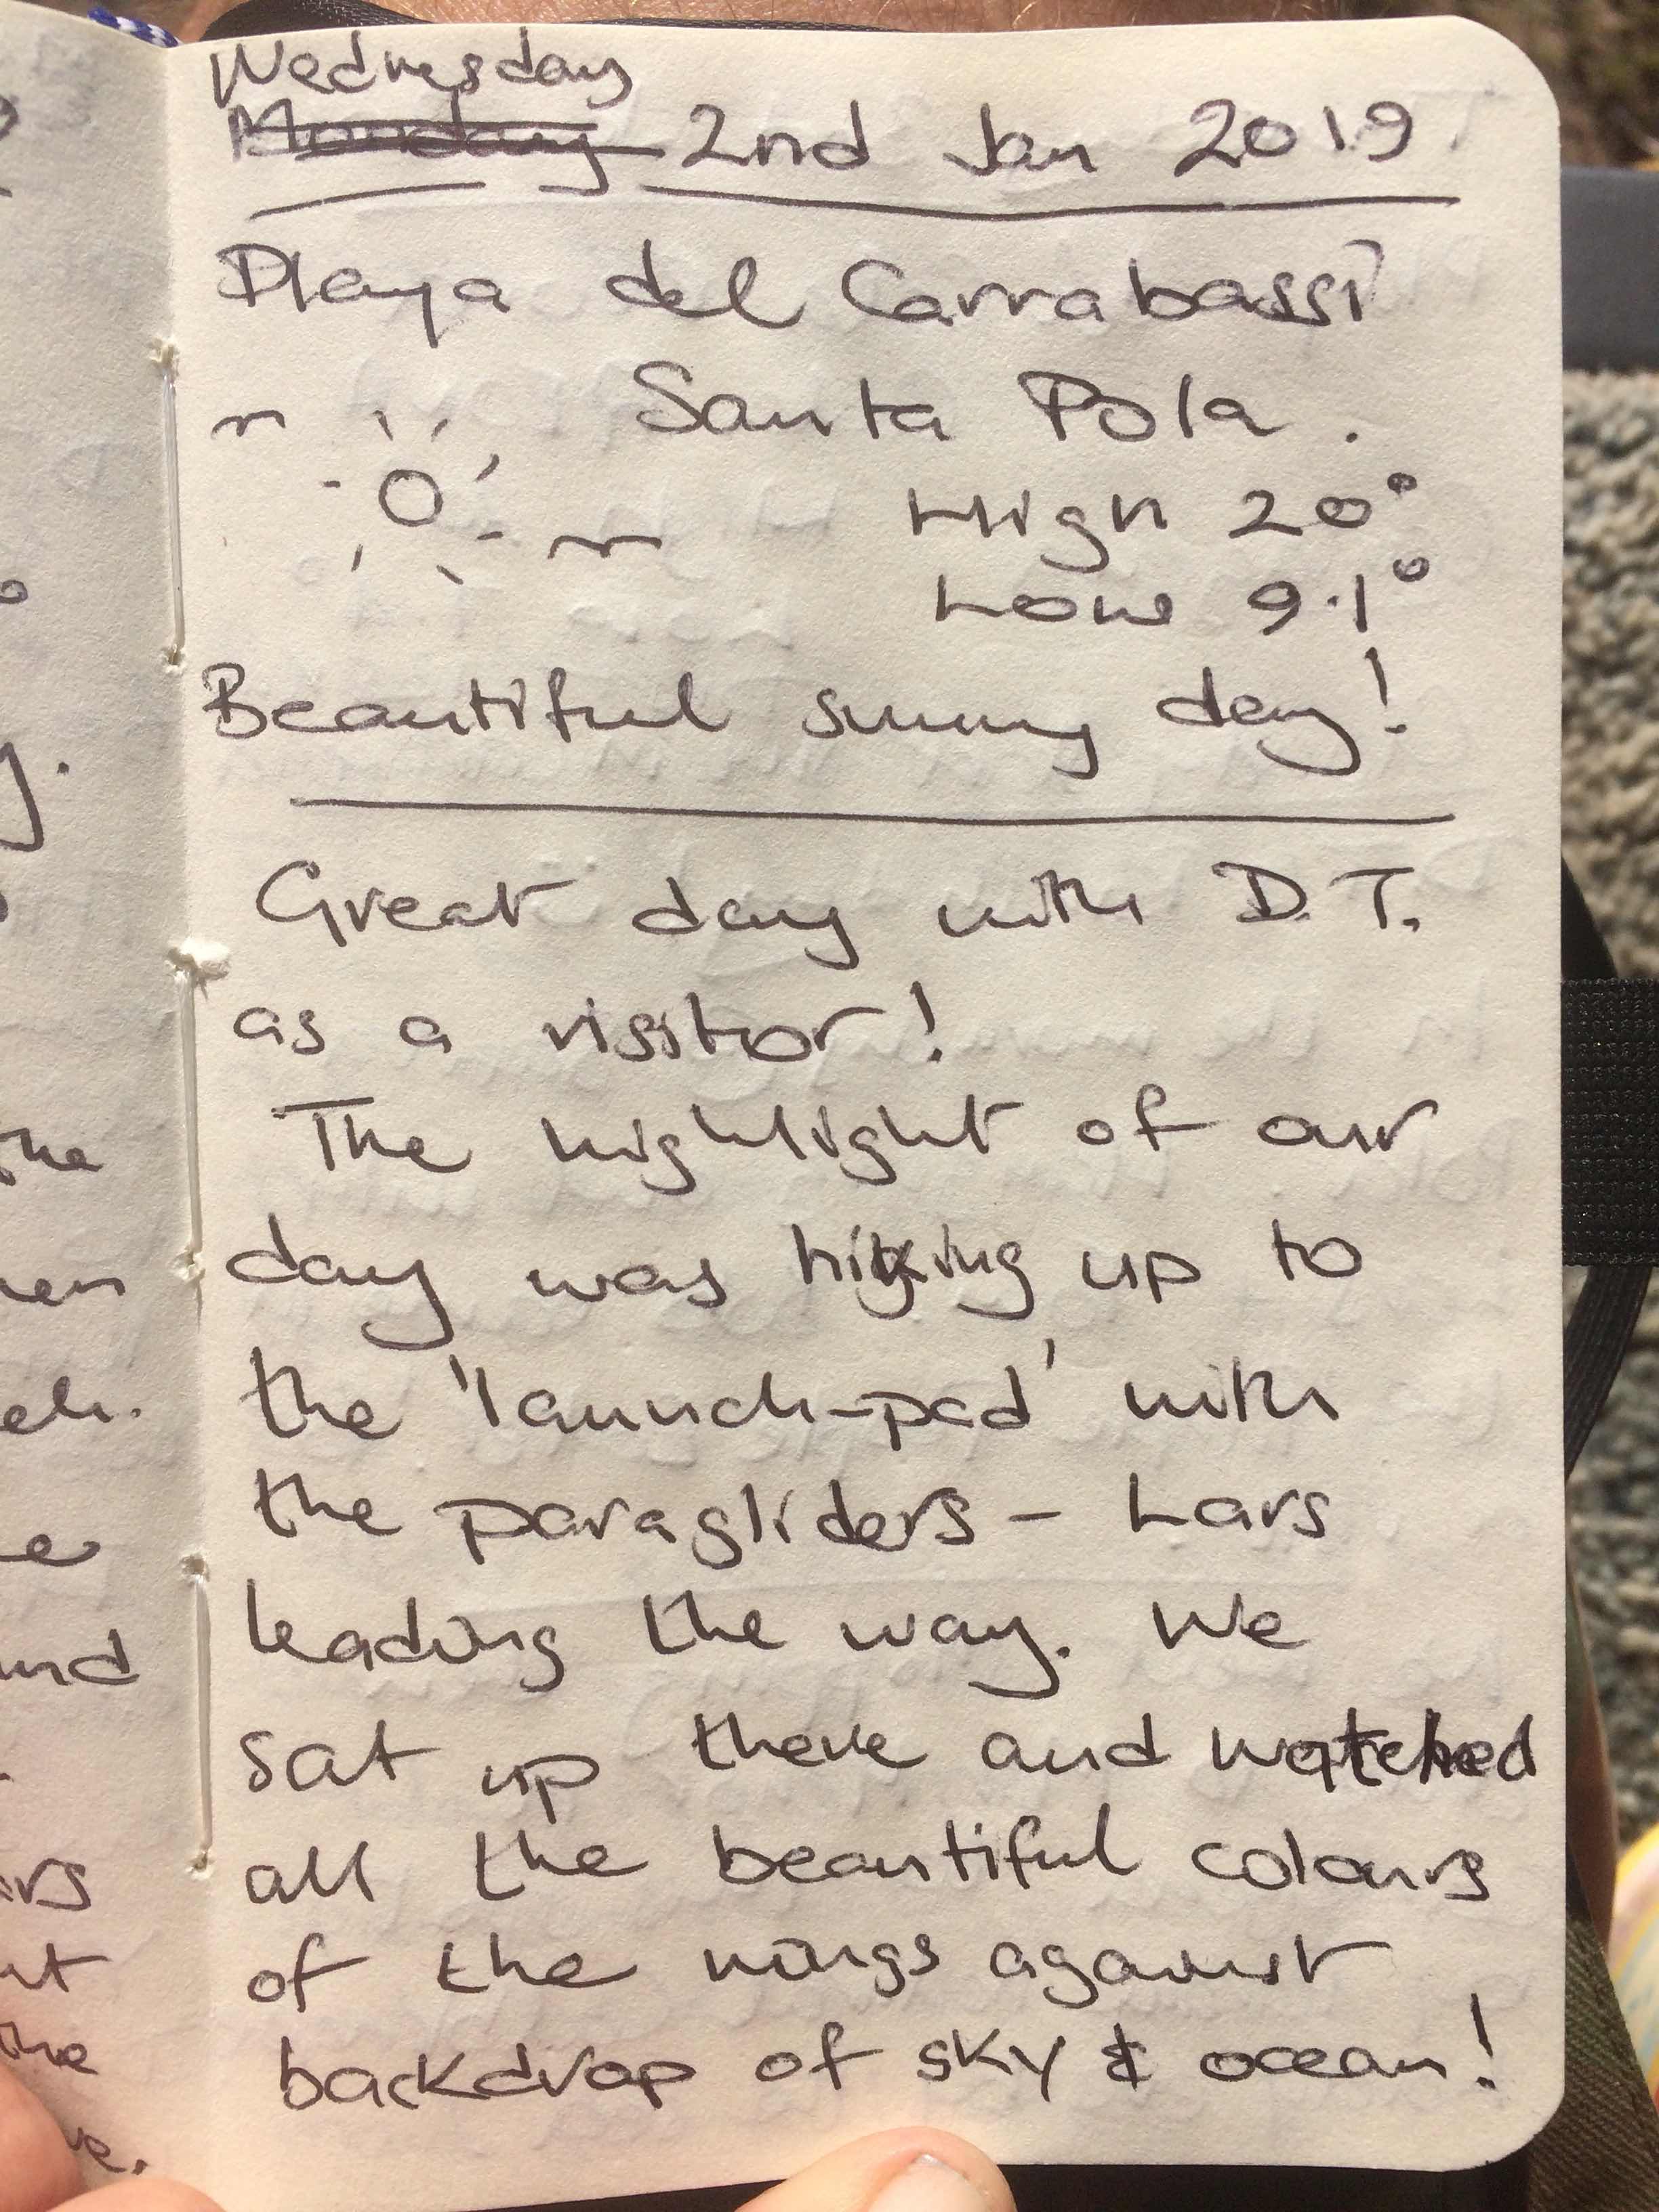 Wednesday
Monday 2nd Jan 2019.
Playa del Carrabassí
Santa Pola.
High 20°
Low 9.1°
Beautiful sunny day!
Great day with D.T.
as a visitor!
The highlight of our
day was hiking up to
the 'launch-pad' with
the paragliders - Lars
leading the way. We
sat up there and watched
all the beautiful colours
of the wings against
backdrop of sky & ocean!